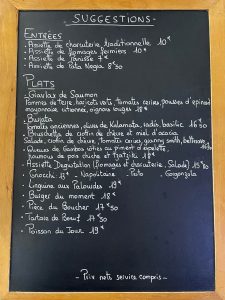 SUGGESTIONS
ENTRÉES
. Assiette de charcuterie traditionnelle 10€
. Assiette de fromages fermiers 10€
. Assiette de Panisse 7€
. Assiette de Pata Negra 8€50
PLATS
. Gravlax de Saumon
Pommes de terre, haricots verts, tomates cerises, pousses d'épinard
mayonnaise citronnée, oignons rouges 18€
. Burrata
Tomates anciennes, olives de Kalamata, radis, basilic 16€50
. Bruschetta de crottin de chèvre et miel d'acacia
Salade, crottin de chèvre, Tomates cerises, granny smith, betterave
. Queues de Gambas rôties au piment d'espelette,
houmous de pois chiche et tzatziki 18€
. Assiette Dégustation (Fromages et charcuterie, Salade) 15€50
. Gnocchi 14€ - Napolitaine - Pesto - Gorgonzola
. Linguine aux Palourdes 19€
. Burger du moment 18€
. Pièce du Boucher 17€50
. Tartare de Boeuf 17€50
. Poisson du Jour 19€
- Prix nets services compris -